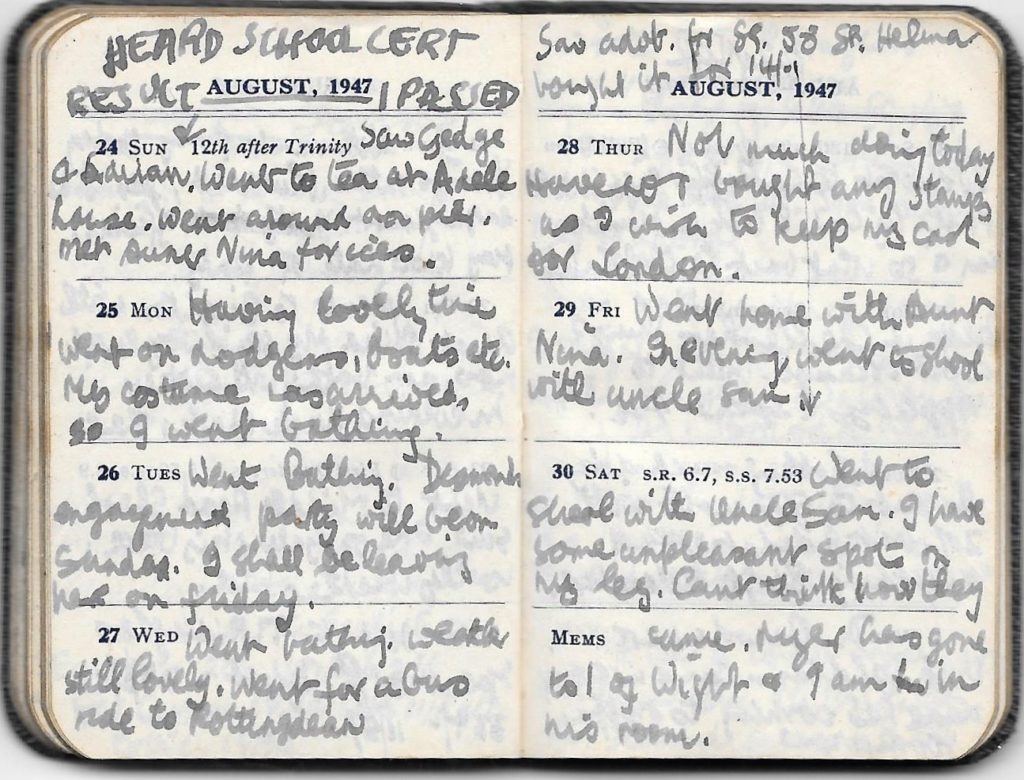 HEARD SCHOOL CERT
RESULT AUGUST, 1947 I PASSED
24 SUN 12th after Trinity Saw Gedge
& Adrian. Went to tea at Adele
house. Went around on pier.
met Nina for ices.
25 MON Having lovely time
went on dodgems, boats etc.
My costume has arrived,
so I went bathing.
26 TUES Went Bathing. Desmond
engagement party will be on
Sunday. I shall be leaving
on friday.
27 WED Went bathing. weather
still lovely. Went for a bus
ride to Rottingdean
Saw advt. for SG. 58 St. Helena
bought it for 14/-
AUGUST, 1947
28 THUR Not much doing today
Have NOT bought any stamps
as I wish to keep my cash
for London.
29 FRI Went home with Aunt
Nina. In evening went to Shool
with uncle Sam
30 SAT S.R. 6.7, S.S. 7.53 Went to
shool with Uncle Sam. I have
some unpleasant spots on
my leg. Can't think how they
MEMS came. has gone
to I of Wight & I am in
his room.